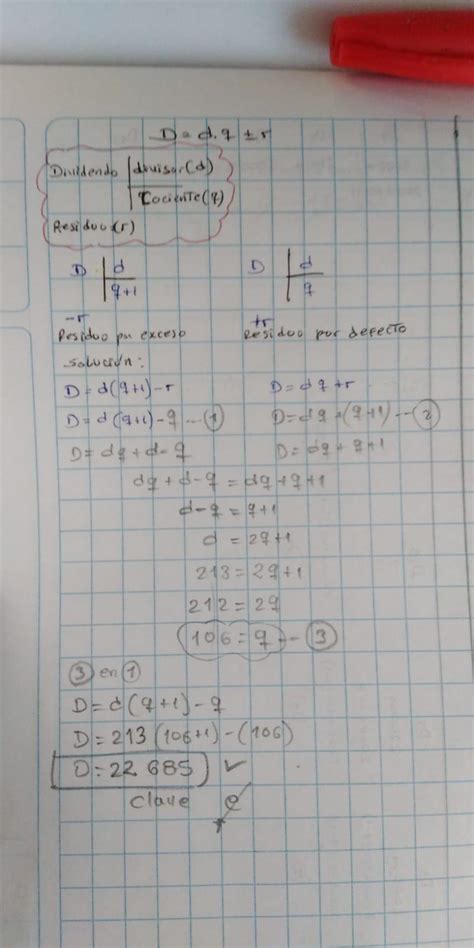 D = d.q ± r
Dividendo | divisor(d)
Cociente(q)
Residuo:(r)
D | d
q+1
-r
Residuo por exceso
D | d
q
+r
Residuo por defecto
Solución:
D = d(q+1)-r
D = dq+r
D = d(q+1)-q ... ①
D = dq+(q+1) --- ②
D = dq + d-q
D = dq + q+1
dq + d-q = dq+q+1
d-q = q+1
d = 2q+1
213 = 2q+1
212 = 2q
106 = q -- ③
③ en ①
D = d(q+1)-q
D = 213(106+1)-(106)
D = 22 685 ✓
Clave e